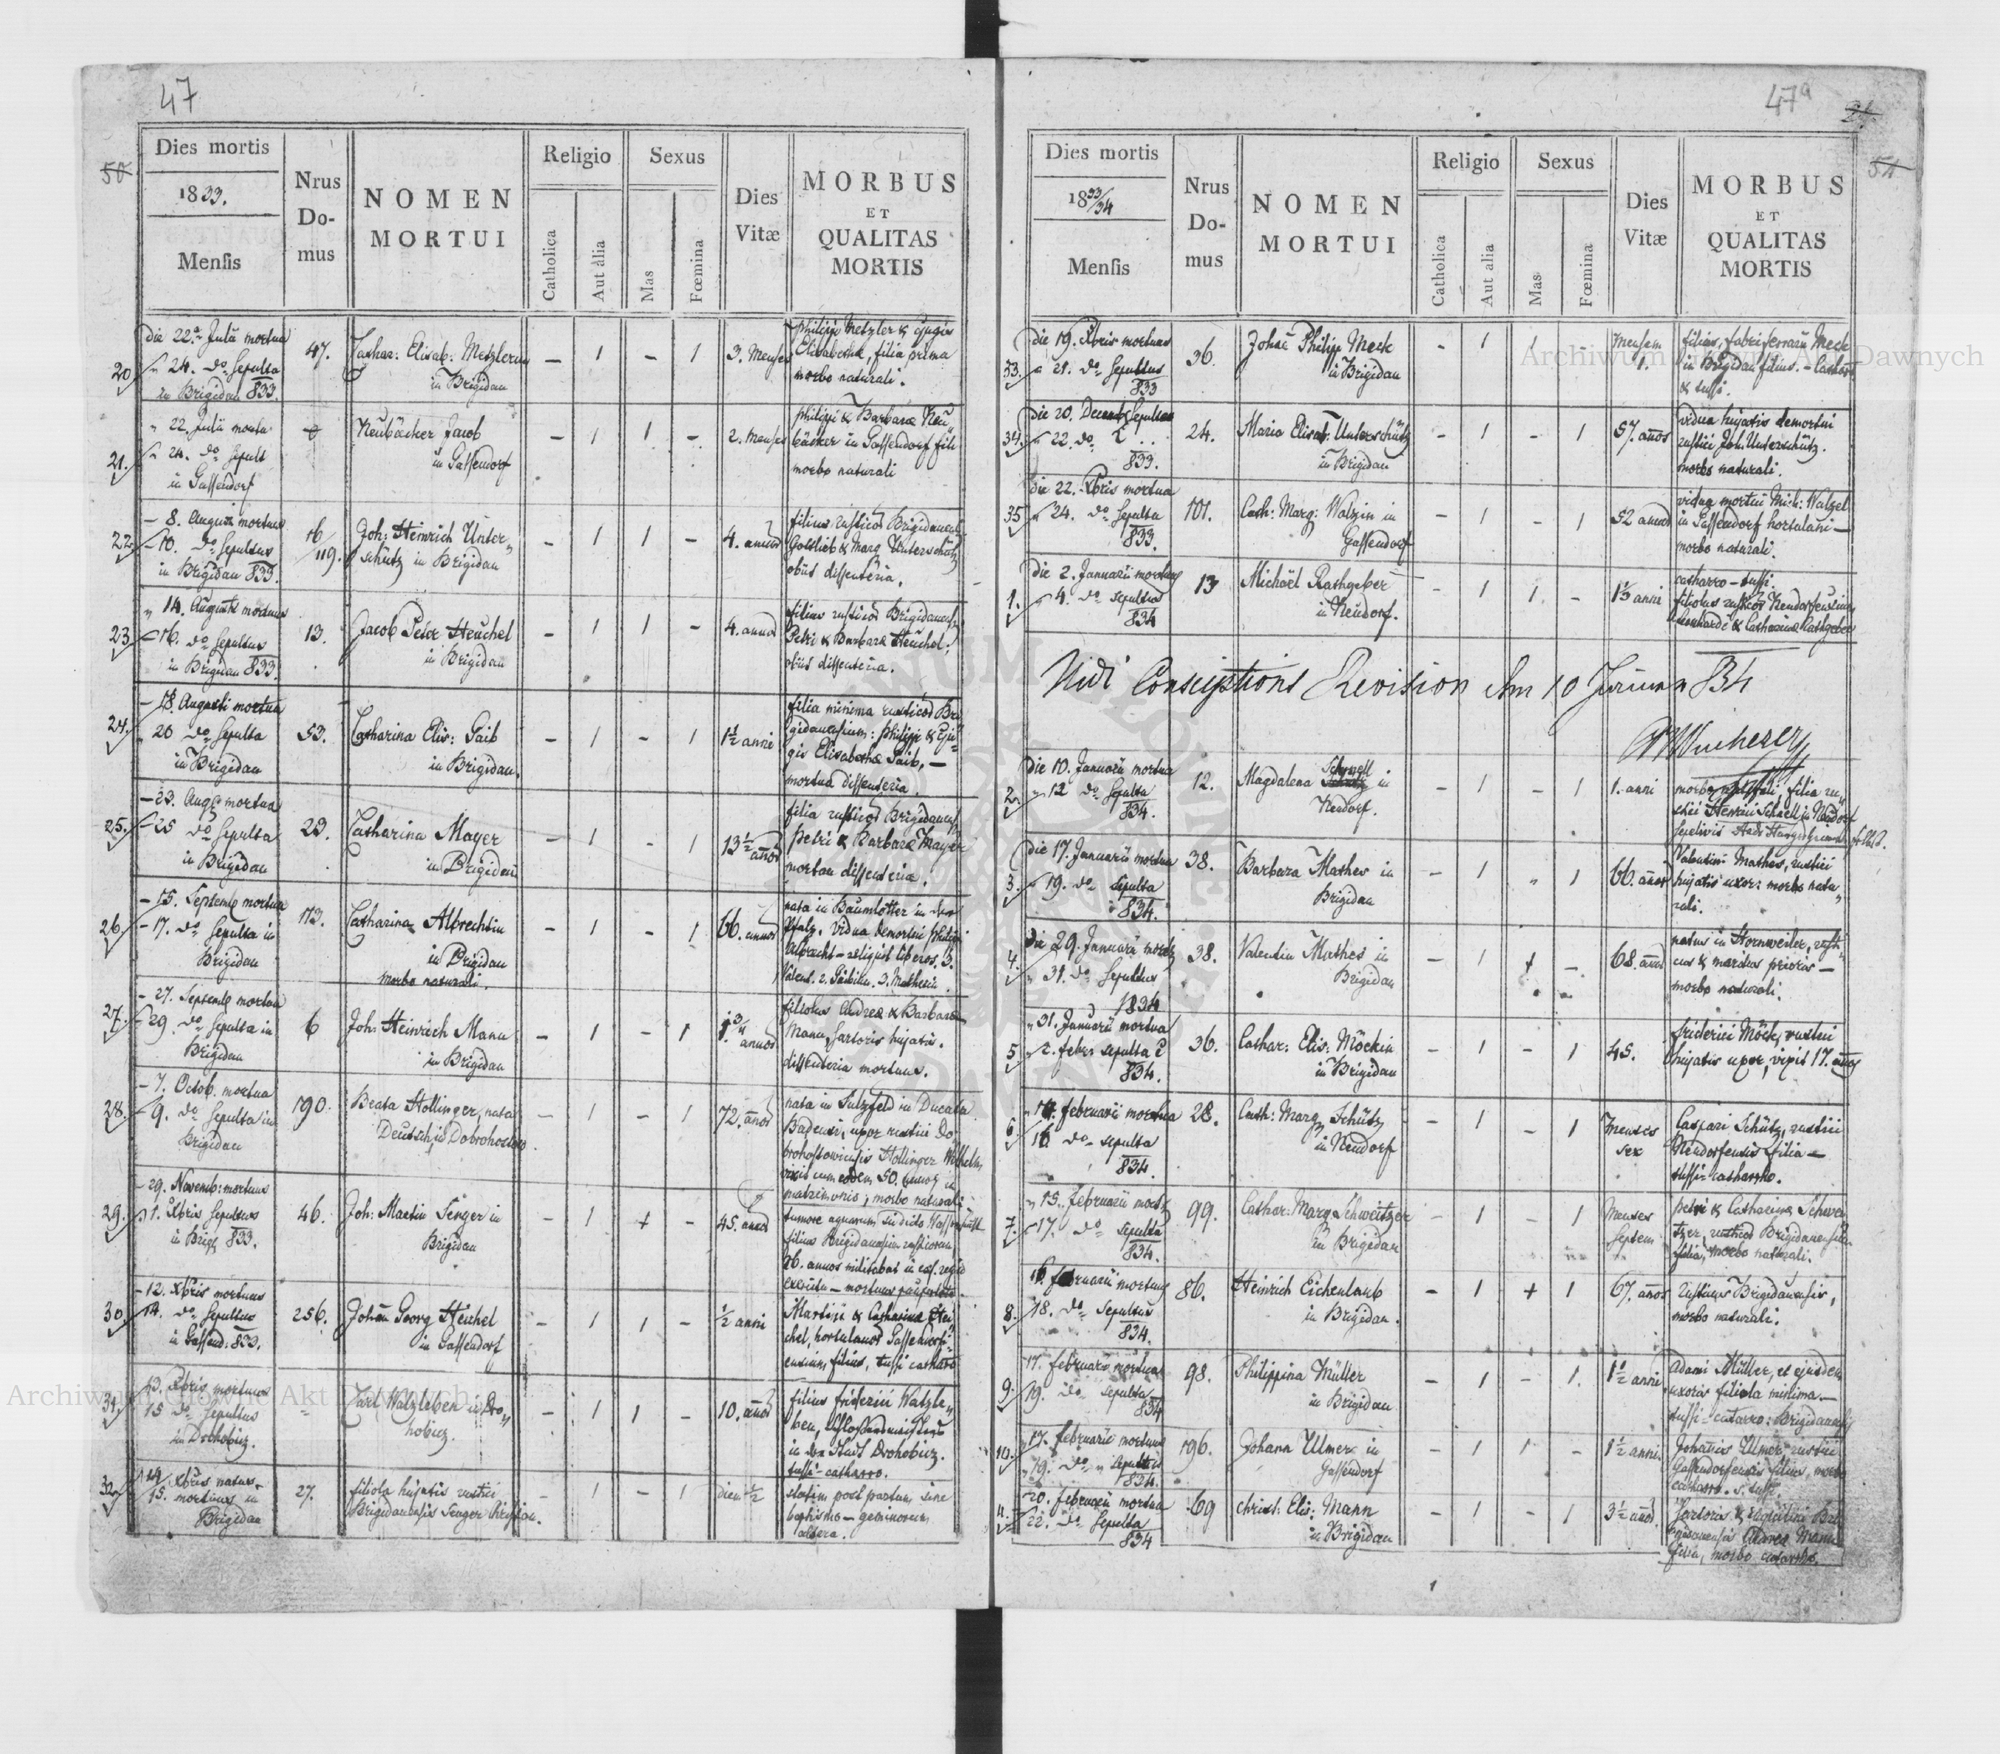 47
50
Dies mortis
1833.
Mensis
Nrus Do-mus
NOMEN
MORTUI
Religio
Catholica
Aut alia
Sexus
Mas
Fœmina
Dies
Vitæ
MORBUS
ET
QUALITAS
MORTIS
20 die 22. Julii mortua
24. do Sepulta
in Brigidau 833.
47.
Cathar: Elisab: Metzlerin
in Brigidau
- 1 - 1
3. Menses
Philippi Metzler &
Elisabethæ, filia prima
morbo naturali.
21. " 22. Julii mortu
24. do Sepult
in Gassendorf
Neubäcker Jacob
in Gassendorf
- 1 1 -
2. Menses
Philippi & Barbaræ Neu„
bäcker in Gassendorf fili
morbo naturali
22 - 8. Augusti mortuus
- 10. do Sepultus
in Brigidau 833.
16/119.
Joh: Heinrich Unter„
schütz in Brigidau
- 1 1 -
4. annos
filius rusticor Brigidauens
Gottlieb & Marg Unterschütz
obiit dissenteria.
23 " 14. Augusti mortuus
- 16. do Sepultus
in Brigidau 833.
13.
Jacob Peter Heuchel
in Brigidau
- 1 1 -
4. annos
filius rusticor Brigidauens
Petri & Barbaræ Heuchel;
obiit dissenteria.
24. - 18. Augusti mortua
" 20 do Sepulta
in Brigidau
53.
Catharina Elis: Gaib
in Brigidau.
- 1 - 1
1½ anni
filia minima rusticor Bri
gidauensium: Philipp &
Elisabethæ Gaib, -
mortua dissenteria.
25. - 23. Aug mortua
- 25 do Sepulta
in Brigidau
23.
Catharina Mayer
in Brigidau
- 1 - 1
13½ annos
filia rusticor Brigidauens
Petri & Barbara Mayer
mortua dissenteriæ.
26 - 15. Septemb mortua
- 17. do Sepulta in
Brigidau
113.
Catharina Albrechtin
in Brigidau
morbo naturali.
- 1 - 1
66. annos
nata in Baumlotter in der
Pfalz. Vidua demortui Philippi
Albrecht - reliquit liberos. 3.
27. - 27. Septemb mortua
- 29. do Sepulta in
Brigidau
6
Joh: Heinrich Mann
in Brigidau
- 1 - 1
annos
filiolus Andreæ & Barbaræ
Mann, Sartoris hujatis.
dissenteria mortuus.
28. - 7. Octob. mortua
- 9. do Sepulta in
Brigidau
190.
Beata Hollinger, nata
Deutsch, in Dobrohostow
- 1 - 1
72. annos
nata in Sulzfeld in Ducatu
Badensi, uxor rustici Do
brohostowiensis Hollinger Wilhelm,
vixit cum eodem 50. annos in
matrimonio; morbo naturali
29. - 29. Novemb: mortuus
1. Xbris Sepultus
in Brig 833.
46.
Joh: Martin Senger in
Brigidau
- 1 + -
45. annos
tumore aquarum
filius Brigidauensium rusticorum,
16. annos militabat in
30 - 12. Xbris mortuus
14. do Sepultus
in Gassend. 833.
256.
Johan Georg Heichel
in Gassendorf
- 1 1 -
½ anni
Martini & Catharina Hei
chel, hortulanor Gassendorf„
ensium, filius, tussi catharo
31. 13. Xbris mortuus
15 do Sepultus
in Drohobicz.
Carl Watzleben in Dro„
hobicz.
- 1 1 -
10. annos
filius friderici Watzle„
ben,
in der Stadt Drohobicz.
tussi-catharro.
32. 14. Xbris natus.
15. mortuus in
Brigidau
27.
filiola hujatis rustici
Brigidauensis Senger Christian.
- 1 - 1
diem ½
statim post partum sine
baptismo - geminorum
altera.
47a
Dies mortis
1833/34
Mensis
Nrus Do-mus
NOMEN
MORTUI
Religio
Catholica
Aut alia
Sexus
Mas
Fœmina
Dies
Vitæ
MORBUS
ET
QUALITAS
MORTIS
33. Die 19. Xbris mortuus
21. do Sepultus
833
36.
Philipp Meck
in Brigidau
- 1 1 -
Mensem
1.
filius, fabri ferrarii Meck
in Brigidau filius. - Catharo
& tussi.
34. Die 20. Decemb Sepultus
22. do
833.
24.
Maria Elisab: Unterschütz
in Brigidau
- 1 - 1
57. años
vidua hujatis demortui
rustici Joh. Unterschütz.
morbo naturali.
35 Die 22. Xbris mortua
24. do Sepulta
833.
101.
Cath: Marg: Walzin in
Gassendorf
- 1 - 1
52 annos
vidua mortui Mich: Walzel
in Gassendorf hortulani -
morbo naturali.
1. Die 2. Januarii mortuus
4. do Sepultus
834
13
Michäel Rathgeber
in Neudorf.
- 1 1 -
anni
catharro - tussi.
filiolus rusticor Neudorfensium
Leonhardi & Catharinæ Rathgeber
Vidi Consciptions Revision Am 10 834
2. Die 10. Januarii mortua
" 12 do Sepulta
834.
12.
Magdalena Schnell in
Neudorf.
- 1 - 1
1. anni
morbo naturali, filia ru
stici Henrici Schnell in Neudorf
3. Die 17. Januarii mortua
19. do Sepulta
834.
38.
Barbara Mathes in
Brigidau
- 1 - 1
66. años
Valentini Mathes, rustici
hujatis uxor: morbo natu
rali.
4. Die 29. Januarii
" 31. do Sepultus
1834
38.
Valentin Mathes in
Brigidau
- 1 + -
68. años
natus in Hornweiler, rusti
cus & maritus prioris -
morbo naturali.
5 " 31. Januarii mortua
2. febr. sepulta
834.
36.
Cathar: Elis: Möckin
in Brigidau
- 1 - 1
45.
friderici Möck, rustici
hujatis uxor, vixit 17. años
6. " 14. februarii mortua
16 do sepulta
834.
28.
Cath: Marg Schütz
in Neudorf
- 1 - 1
Menses
sex
Caspari Schütz, rustici
Neudorfensis filia -
tussi-catharrho.
7. " 15. februarii mort
- 17. do Sepulta
834.
99.
Cathar: Marg Schweitzer
in Brigidau
- 1 - 1
Menses
septem
Petri & Catharinæ Schwei
tzer, rusticor Brigidauensium
filia, morbo naturali.
8. 16. februarii mortuus
18. do Sepultus
834.
86.
Heinrich Eichenlaub
in Brigidau.
- 1 + 1
67. años
Rusticus Brigidauensis,
morbo naturali.
9. 17. februarii mortua
19. do Sepulta
834
98.
Philippina Müller
in Brigidau
- 1 - 1.
1½ anni
Adami Müller, et ejusdem
uxoris filiola minima. -
tussi-catarro: Brigidauensis
10. " 17. februarii mortuus
" 19. do " Sepultus
834.
196.
Johann Ulmer in
Gassendorf
- 1 1 -
1½ anni
Johannis Ulmer rustici
Gassendorfensis filius, morbo
catharo. s. tussi.
11. 20. februarii mortua
22. do Sepulta
834
69
Christ: Elis: Mann
in Brigidau
- 1 - 1
3½ años.
Sartoris & inquilini Bri
gidauensis Andreæ Mann
filia, morbo catarrho.
Archiwum Główne Akt Dawnych
Archiwum Główne Akt Dawnych